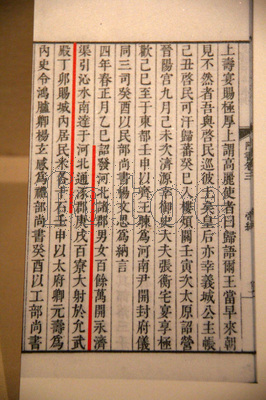 上壽宴賜極厚上謂高麗使者曰歸語爾王當早來朝
見不然者吾與啓民巡彼土矣皇后亦幸義城公主帳
己丑啓民可汗歸蕃癸巳入樓煩關壬寅次太原詔營
晉陽宮九月己未次濟源幸御史大夫張衡宅宴享極
歡己巳至于東都壬申以齊王暕為河南尹開封府儀
同三司癸酉以民部尚書楊文思為納言
四年春正月乙巳詔發河北諸郡男女百餘萬開永濟
渠引沁水南達于河北通涿郡庚戌百寮大射於允武
殿丁卯賜城內居民米各十石壬申以太府卿元壽為
內史令鴻臚卿楊玄感為禮部尚書癸酉以工部尚書